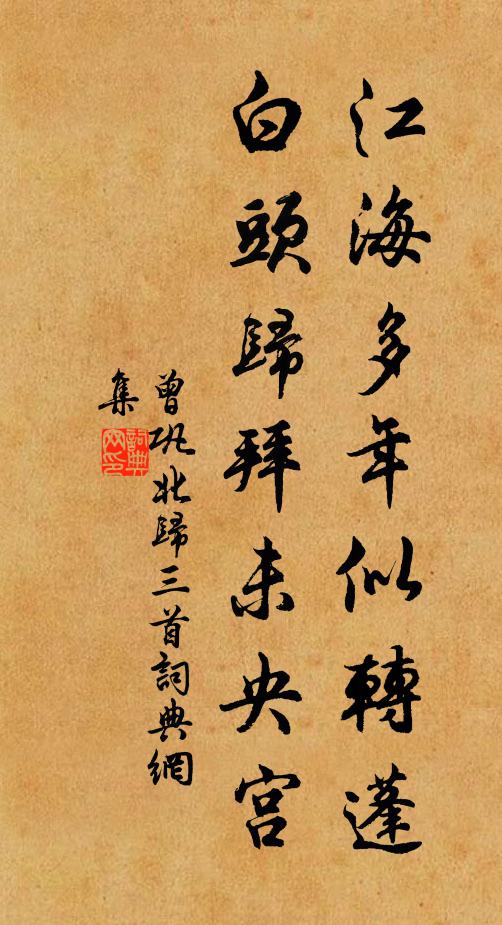 江海多年似轉蓬
白頭歸拜未央宮
曾巩北歸三首詞典網
集
詞典网印